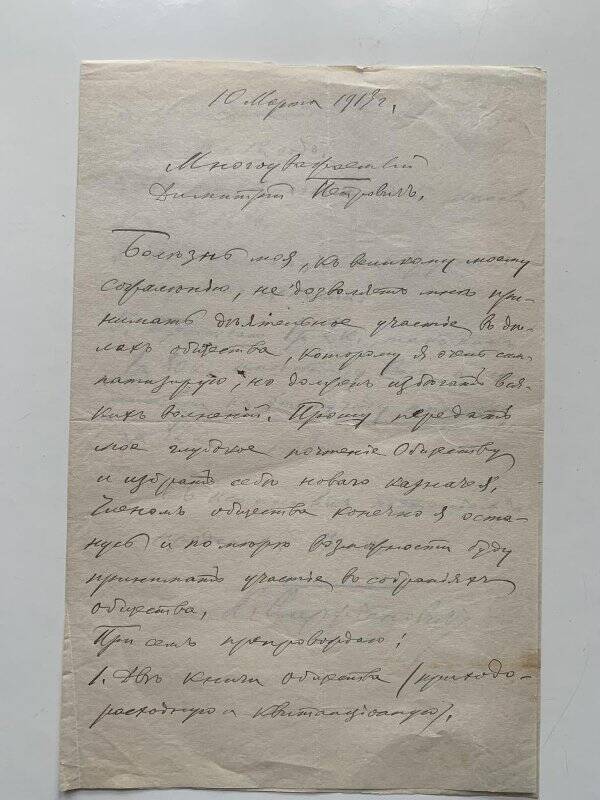 10 Марта 191 г.
Многоуважаемый
Димитрій Петровичъ.
Болѣзнь моя, къ великому моему
сожалѣнію, не дозволяетъ мнѣ при-
нимать дѣятельное участіе въ дѣ-
лахъ общества, которому я очень сим-
патизирую, но долженъ избѣгать вся-
кихъ волненій. Прошу передать
мое глубокое почтеніе Обществу
и избрать себѣ новаго казначея,
Членомъ общества конечно я оста-
нусь и по мѣрѣ возможности буду
принимать участіе въ собраніяхъ
общества,
При семъ препровождаю:
1. Двѣ книги общества (приходо-
расходную и квитанціонную).